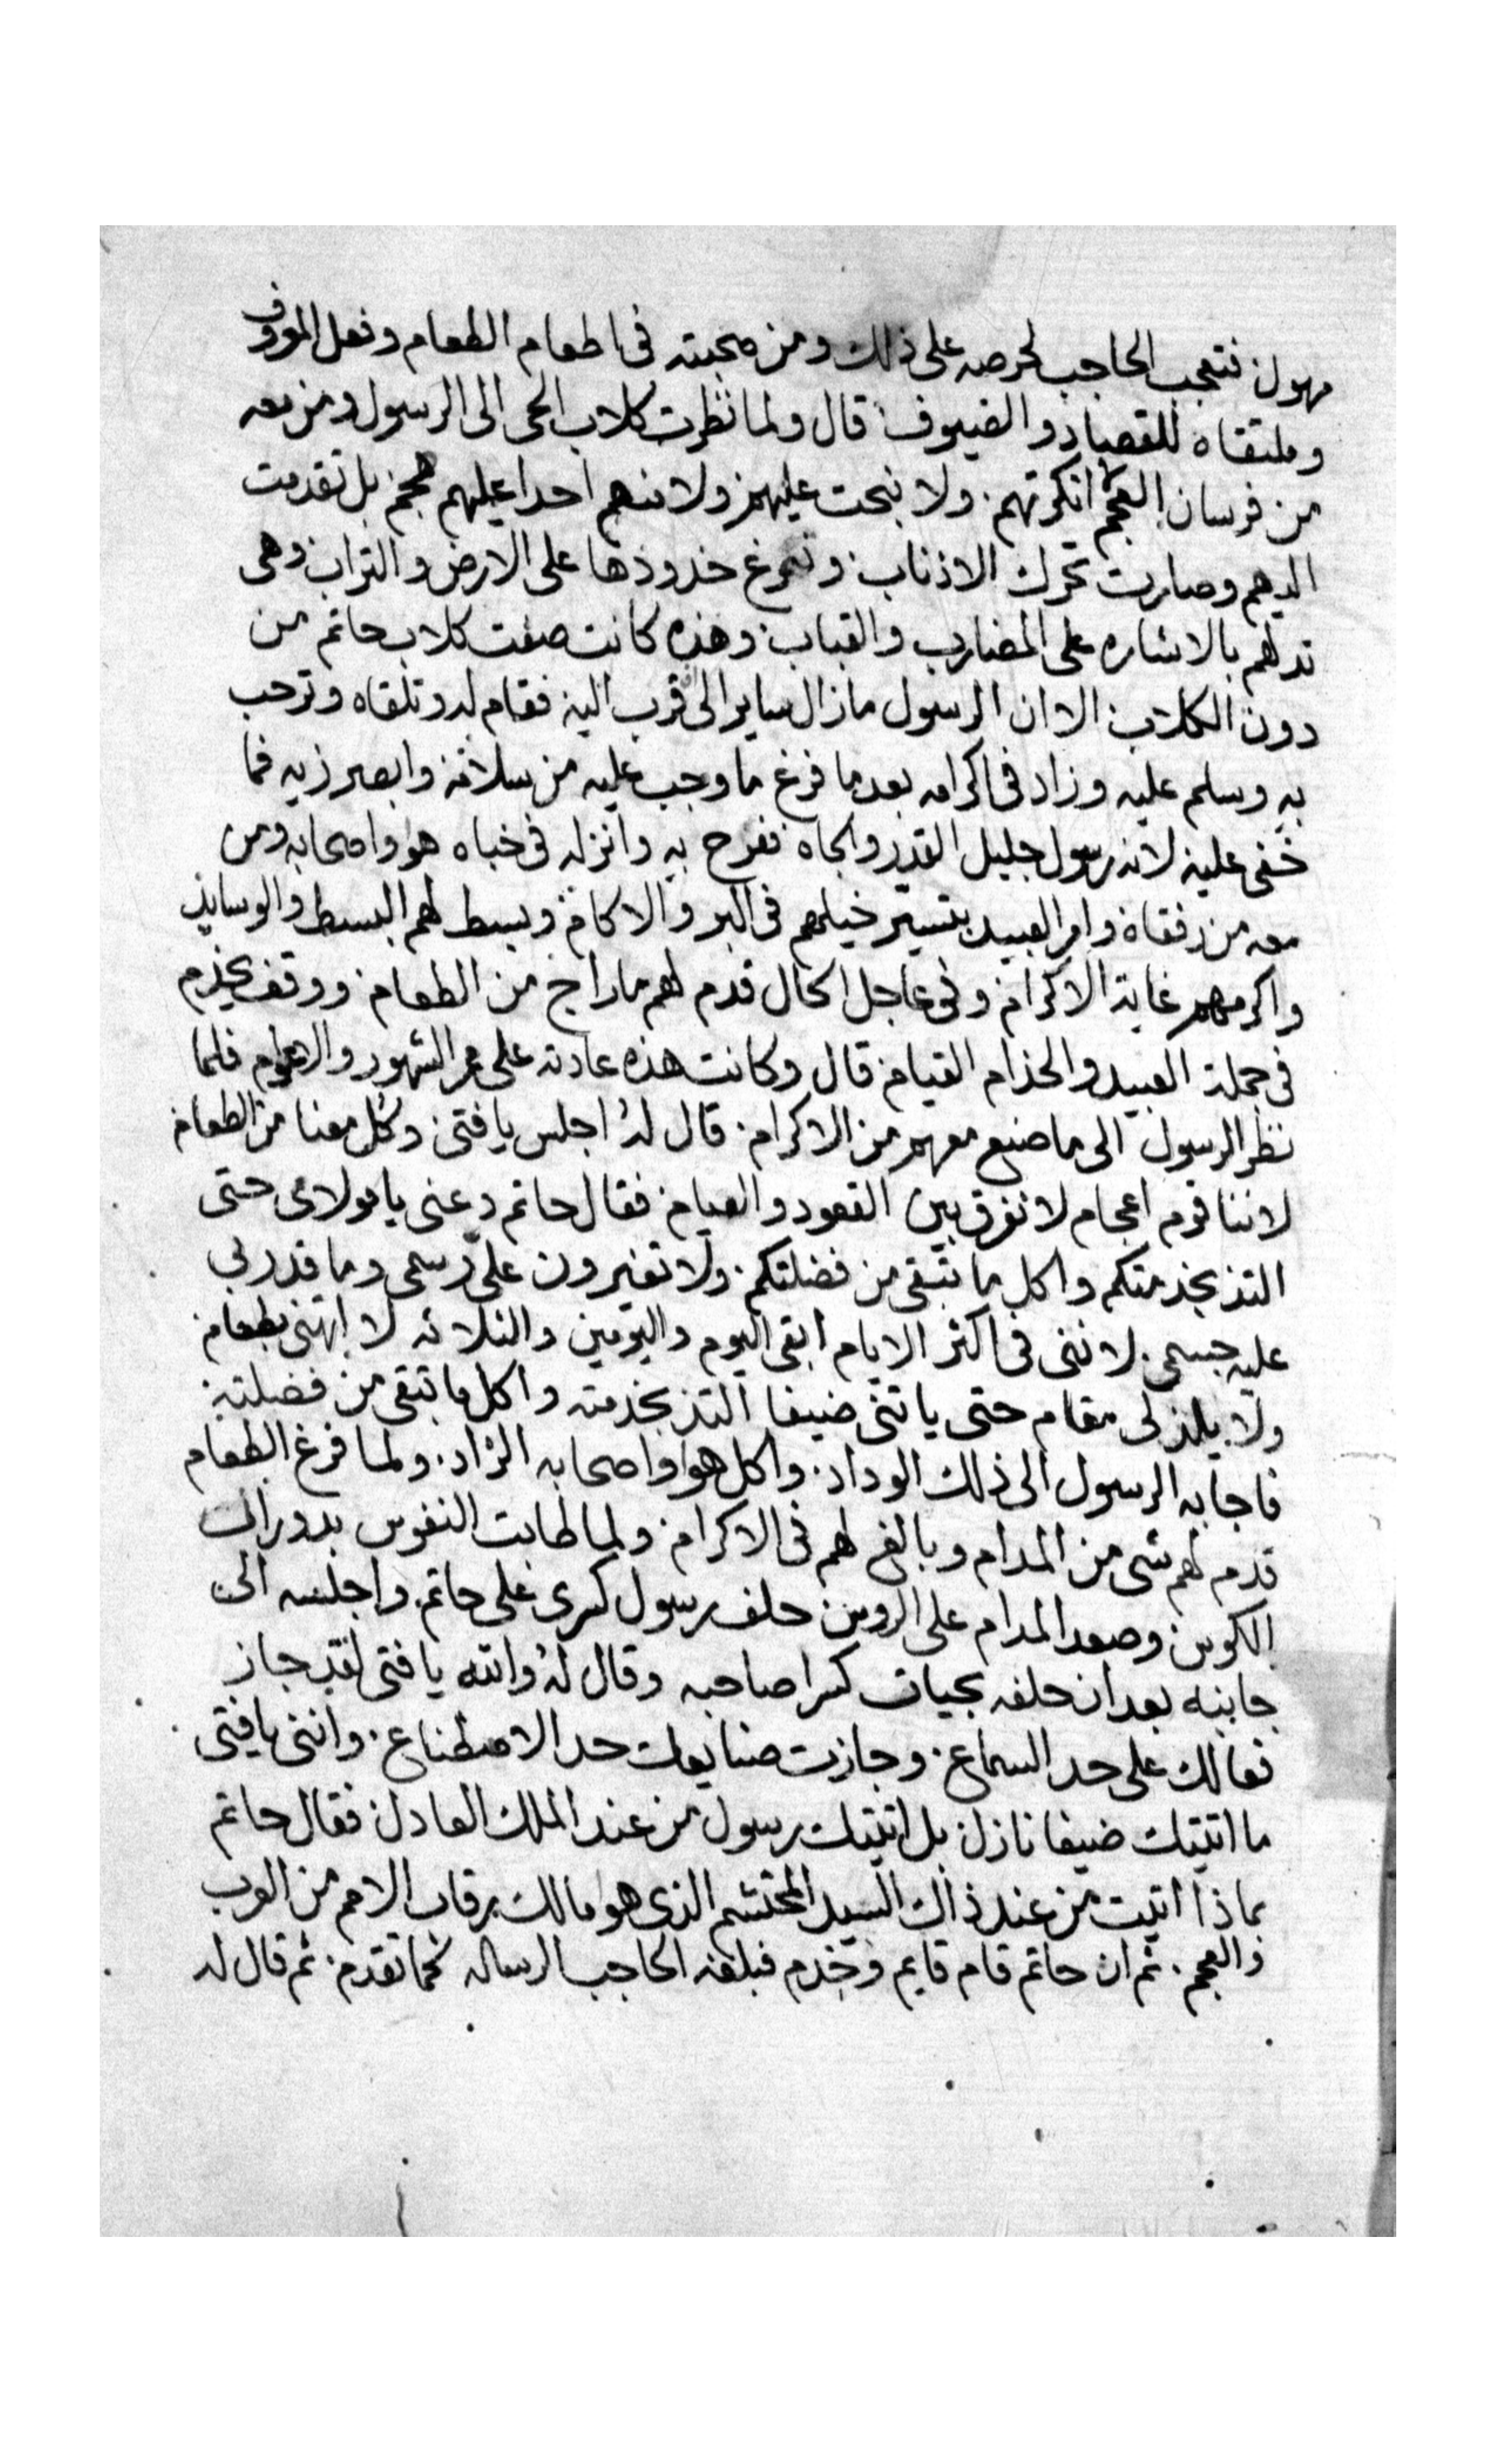 مهول فتعجب الحاجب لحرصه على ذلك ومن محبته فى اطعام الطعام وفعل المعروف
وملتقاه للقصاد والضيوف قال ولما نظرت كلاب الحى الى الرسول ومن معه
من فرسان العجم انكرتهم ولا نبحت عليهم ولا منهم احدا عليهم هجم بل تقدمت
اليهم وصارت تحرك الاذناب وتمرغ خدودها على الارض والتراب وهى
تدلهم بالاشاره على المضارب والقباب وهذه كانت صفت كلاب حاتم من
دون الكلاب الا ان الرسول مازال ساير الى قرب اليه فقام له وتلقاه وترحب
به وسلم عليه وزاد فى اكرامه بعد ما فرغ ما وجب عليه من سلامه وابصر زيه فما
خفى عليه لانه رسول جليل القدر والجاه ففرح به وانزله فى خباه هو واصحابه ومن
معه من رفقاه وامر العبيد بتسير خيلهم فى البر والاكام وبسط لهم البسط والوسايد
واكرمهم غاية الاكرام وفى عاجل الحال قدم لهم ما راج من الطعام ووقف يخدم
فى جملة العبيد والخدام القيام قال وكانت هذه عادته على مر الشهور والاعوام فلما
نظر الرسول الى ما صنع معهم من الاكرام قال له اجلس يا فتى وكل معنا من الطعام
لاننا قوم اعجام لا نفرق بين القعود والقيام فقال حاتم دعنى يا مولاى حتى
التذ بخدمتكم واكل ما تبقى من فضلتكم ولا تغيرون علىّ رسمى وما قد ربى
عليه جسمى لاننى فى اكثر الايام ابقى اليوم واليومين والثلاثه لا اتهنى بطعام
ولا يلذ لى مقام حتى ياتنى ضيفا التذ بخدمته واكل ما تبقى من فضلته
فاجابه الرسول الى ذلك الوداد واكل هو واصحابه الزاد ولما فرغ الطعام
قدم لهم شى من المدام وبالغ لهم فى الاكرام ولما طابت النفوس بدوران
الكوس وصعد المدام على الروس حلف رسول كسرى على حاتم واجلسه الى
جانبه بعد ان حلفه بحيات كسرا صاحبه وقال له والله يا فتى لقد جاز
فعالك على حد السماع وجازت صنايعك حد الاصطناع واننى يا فتى
ما اتيتك ضيفا نازل بل اتيتك رسول من عند الملك العادل فقال حاتم
بماذا اتيت من عند ذاك السيد المحتشم الذى هو مالك رقاب الامم من العرب
والعجم ثم ان حاتم قام قايم وخدم فبلغه الحاجب الرساله كما تقدم ثم قال له